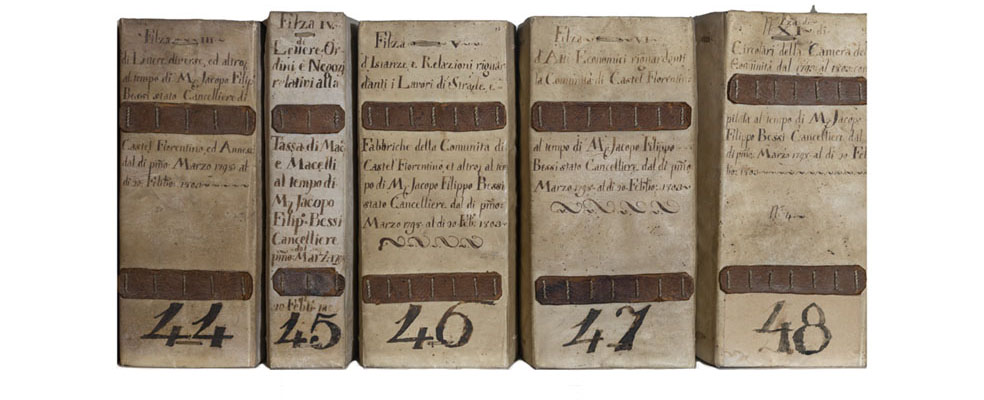 Filza III
di Lettere diverse, ed altro,
al tempo di Mr. Jacopo Filip.
Bessi stato Cancelliere di
Castel Fiorentino, ed Annessi
dal dì pmo. Marzo 1795. al
dì 20. Febbio. 1803
44
Filza IV.
di
Lettere Or-
dini e Negozi
relativi alla
Tassa di Mac
e Macelli
al tempo di
Mr. Jacopo
Filip. Bessi
Cancelliere
dal
pmo. Marzo
20 Febb.
45
Filza V
d'Istanze, e Relazioni riguar
danti i Lavori di Strade, e
Fabbriche della Comunità di
Castel Fiorentino et altro, al tem
po di Mr. Jacopo Filippo Bessi
stato Cancelliere dal dì pmo.
Marzo 1795. al dì 20 Feb. 1803
46
Filza VI
d'Atti Economici riguardanti
la Comunità di Castel Fiorentino
al tempo di Mr. Jacopo Filippo
Bessi stato Cancelliere dal dì pmo.
Marzo 1795. al dì 20. Febbio. 1803
47
Filza di
XI
Circolari della Camera del
Comunità dal 1795. al 1802.
al tempo di Mr. Jacopo
Filippo Bessi Cancelliere dal
dì pmo. Marzo 1795. al dì 20. Febb.
1803
N. 4
48